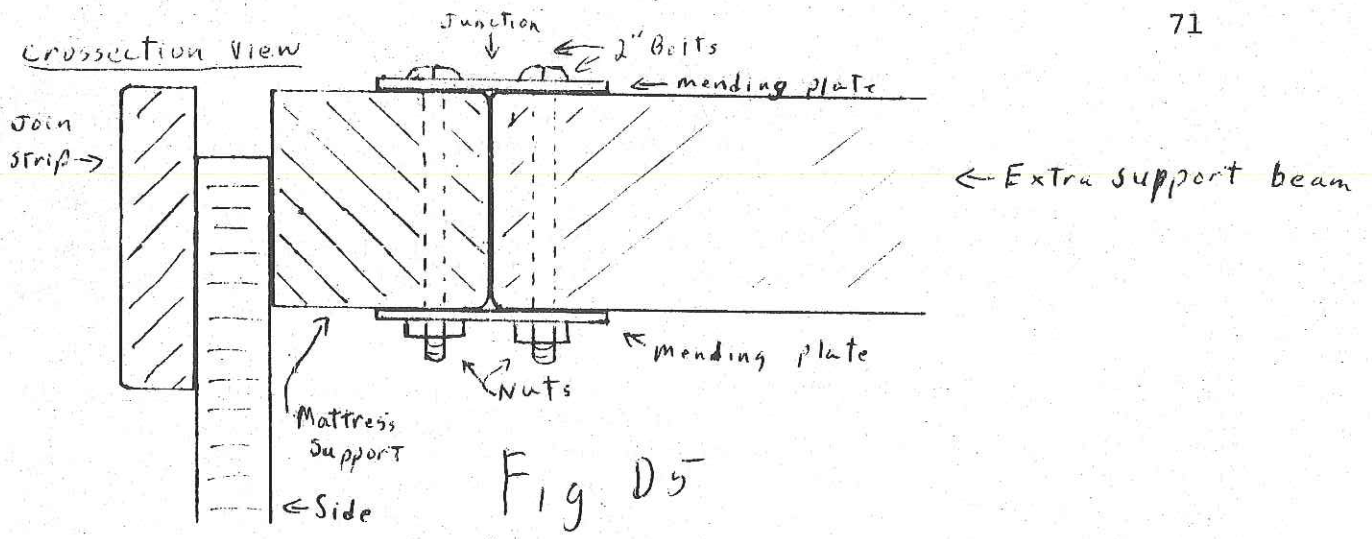 71
Crossection View
Junction
2" Bolts
mending plate
Join
strip
Extra support beam
mending plate
Nuts
Mattress
Support
Side
Fig D5